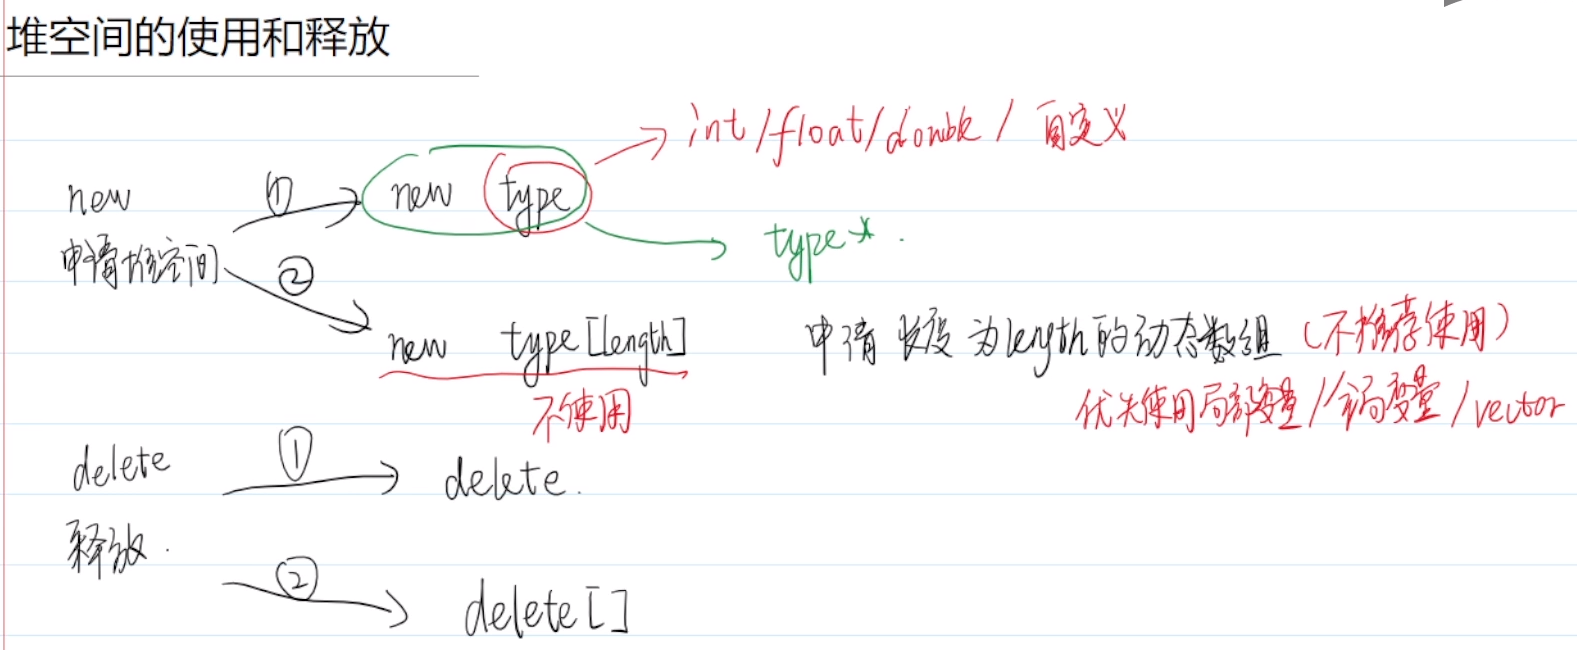 堆空间的使用和释放
int/float/double/自定义
new ① new type
type*.
申请堆空间 ②
new type[length] 申请 长度为length的动态数组(不推荐使用)
不使用 优先使用局部变量/全局变量/vector
delete ① delete.
释放.
② delete[]